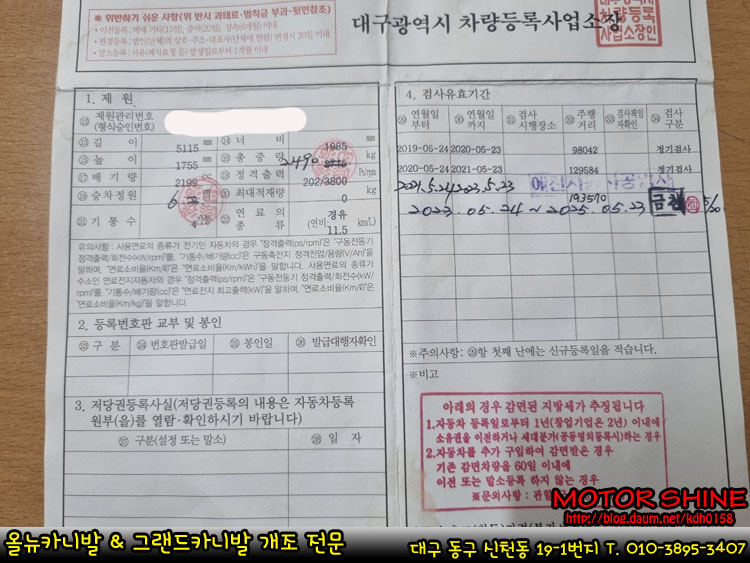 ※ 위반하기 쉬운 사항(위 반시 과태료·범칙금 부과-뒷면참조)
대구광역시 차량등록사업소장
1. 제 원
⑫ 제원관리번호
(형식승인번호)
⑬ 길 이 5115 mm ⑭ 너 비 1985 mm
⑮ 높 이 1755 mm ⑯ 총 중 량 2490 kg
⑰ 배 기 량 2199 cc ⑱ 정격출력 202/3800 Ps/rpm
⑲ 승차정원 6 명 ⑳ 최대적재량 0 kg
㉑ 기 통 수 4 기통 ㉒ 연 료 의 종 류 경유 (연비: 11.5 km/L)
유의사항 : 사용연료의 종류가 전기인 자동차의 경우 "정격출력(ps/rpm)"은 "구동전동기
정격출력/회전수(kW/rpm)"를, "기통수/배기량(cc)"은 구동축전지 정격전압/용량(V/Ah)"을
말하며, "연료소비율(Km/ℓ)"은 "연료소비율(Km/kWh)"을 말합니다. 사용연료의 종류가
수소인 연료전지자동차의 경우 "정격출력(ps/rpm)"은 "구동전동기 정격출력/회전수(kW/
rpm)"를, "기통수/배기량(cc)"은 "연료전지 최고출력(kW)"을 말하며, "연료소비율(Km/ℓ)"은
"연료소비율(Km/kg)"을 말합니다.
2. 등록번호판 교부 및 봉인
㉓ 구 분 ㉔ 번호판발급일 ㉕ 봉인일 ㉖ 발급대행자확인
3. 저당권등록사실(저당권등록의 내용은 자동차등록
원부(을)를 열람·확인하시기 바랍니다)
㉗ 구분(설정 또는 말소) ㉘ 일 자
4. 검사유효기간
㉙ 연월일 부터 ㉚ 연월일 까지 ㉛ 검사 시행장소 ㉜ 주행 거리 ㉝ 검사책임 자확인 ㉞ 검사 구분
2019-05-24 2020-05-23 98042 정기검사
2020-05-24 2021-05-23 129584 정기검사
2021.5.24 2023.5.23
193570
2023.05.24 ~ 2025.05.23 금천
※주의사항: ㉙항 첫째 난에는 신규등록일을 적습니다.
※비고
아래의 경우 감면된 지방세가 추징됩니다
1.자동차 등록일로부터 1년(창업기업은 2년) 이내에
소유권을 이전하거나 세대분가(공동명의등록시)하는 경우
2.자동차를 추가 구입하여 감면받은 경우
기존 감면차량을 60일 이내에
이전 또는 말소등록 하지 않는 경우
※문의사항 : 관할
MOTOR SHINE
http://blog.daum.net/kdh0158
올뉴카니발 & 그랜드카니발 개조 전문
대구 동구 신천동 19-1번지 T. 010-3895-3407